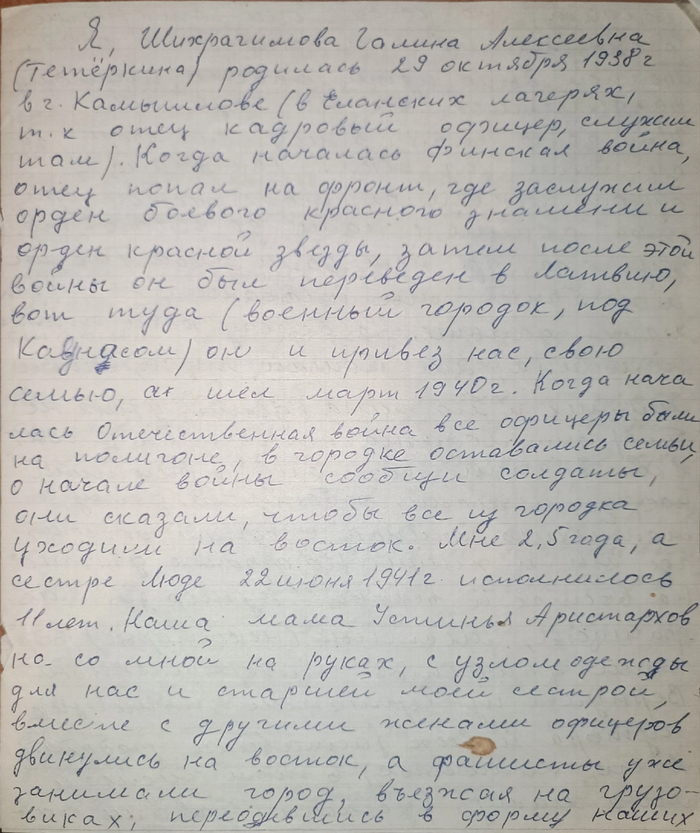 Я, Шихрагимова Галина Алексеевна
(Тетёркина) родилась 29 октября 1938 г
в г. Камышлове (в Еланских лагерях,
т.к отец кадровый офицер, служил
там). Когда началась финская война,
отец попал на фронт, где заслужил
орден боевого красного знамени и
орден красной звезды, затем после этой
войны он был переведен в Латвию,
вот туда (военный городок, под
Каунасом) он и привез нас, свою
семью, а шёл март 1940г. Когда нача
лась Отечественная война все офицеры были
на полигоне, в городке оставались семьи,
о начале войны сообщи солдаты,
они сказали, чтобы все из городка
уходили на восток. Мне 2,5 года, а
сестре Люде 22 июня 1941г. исполнилось
11 лет. Наша мама Устинья Аристархов
на со мной на руках, с узлом одежды
для нас и старшей моей сестрой,
вместе с другими женами офицеров
двинулись на восток, а фашисты уже
занимали город, въезжая на грузо-
виках, переодевшись в форму наших